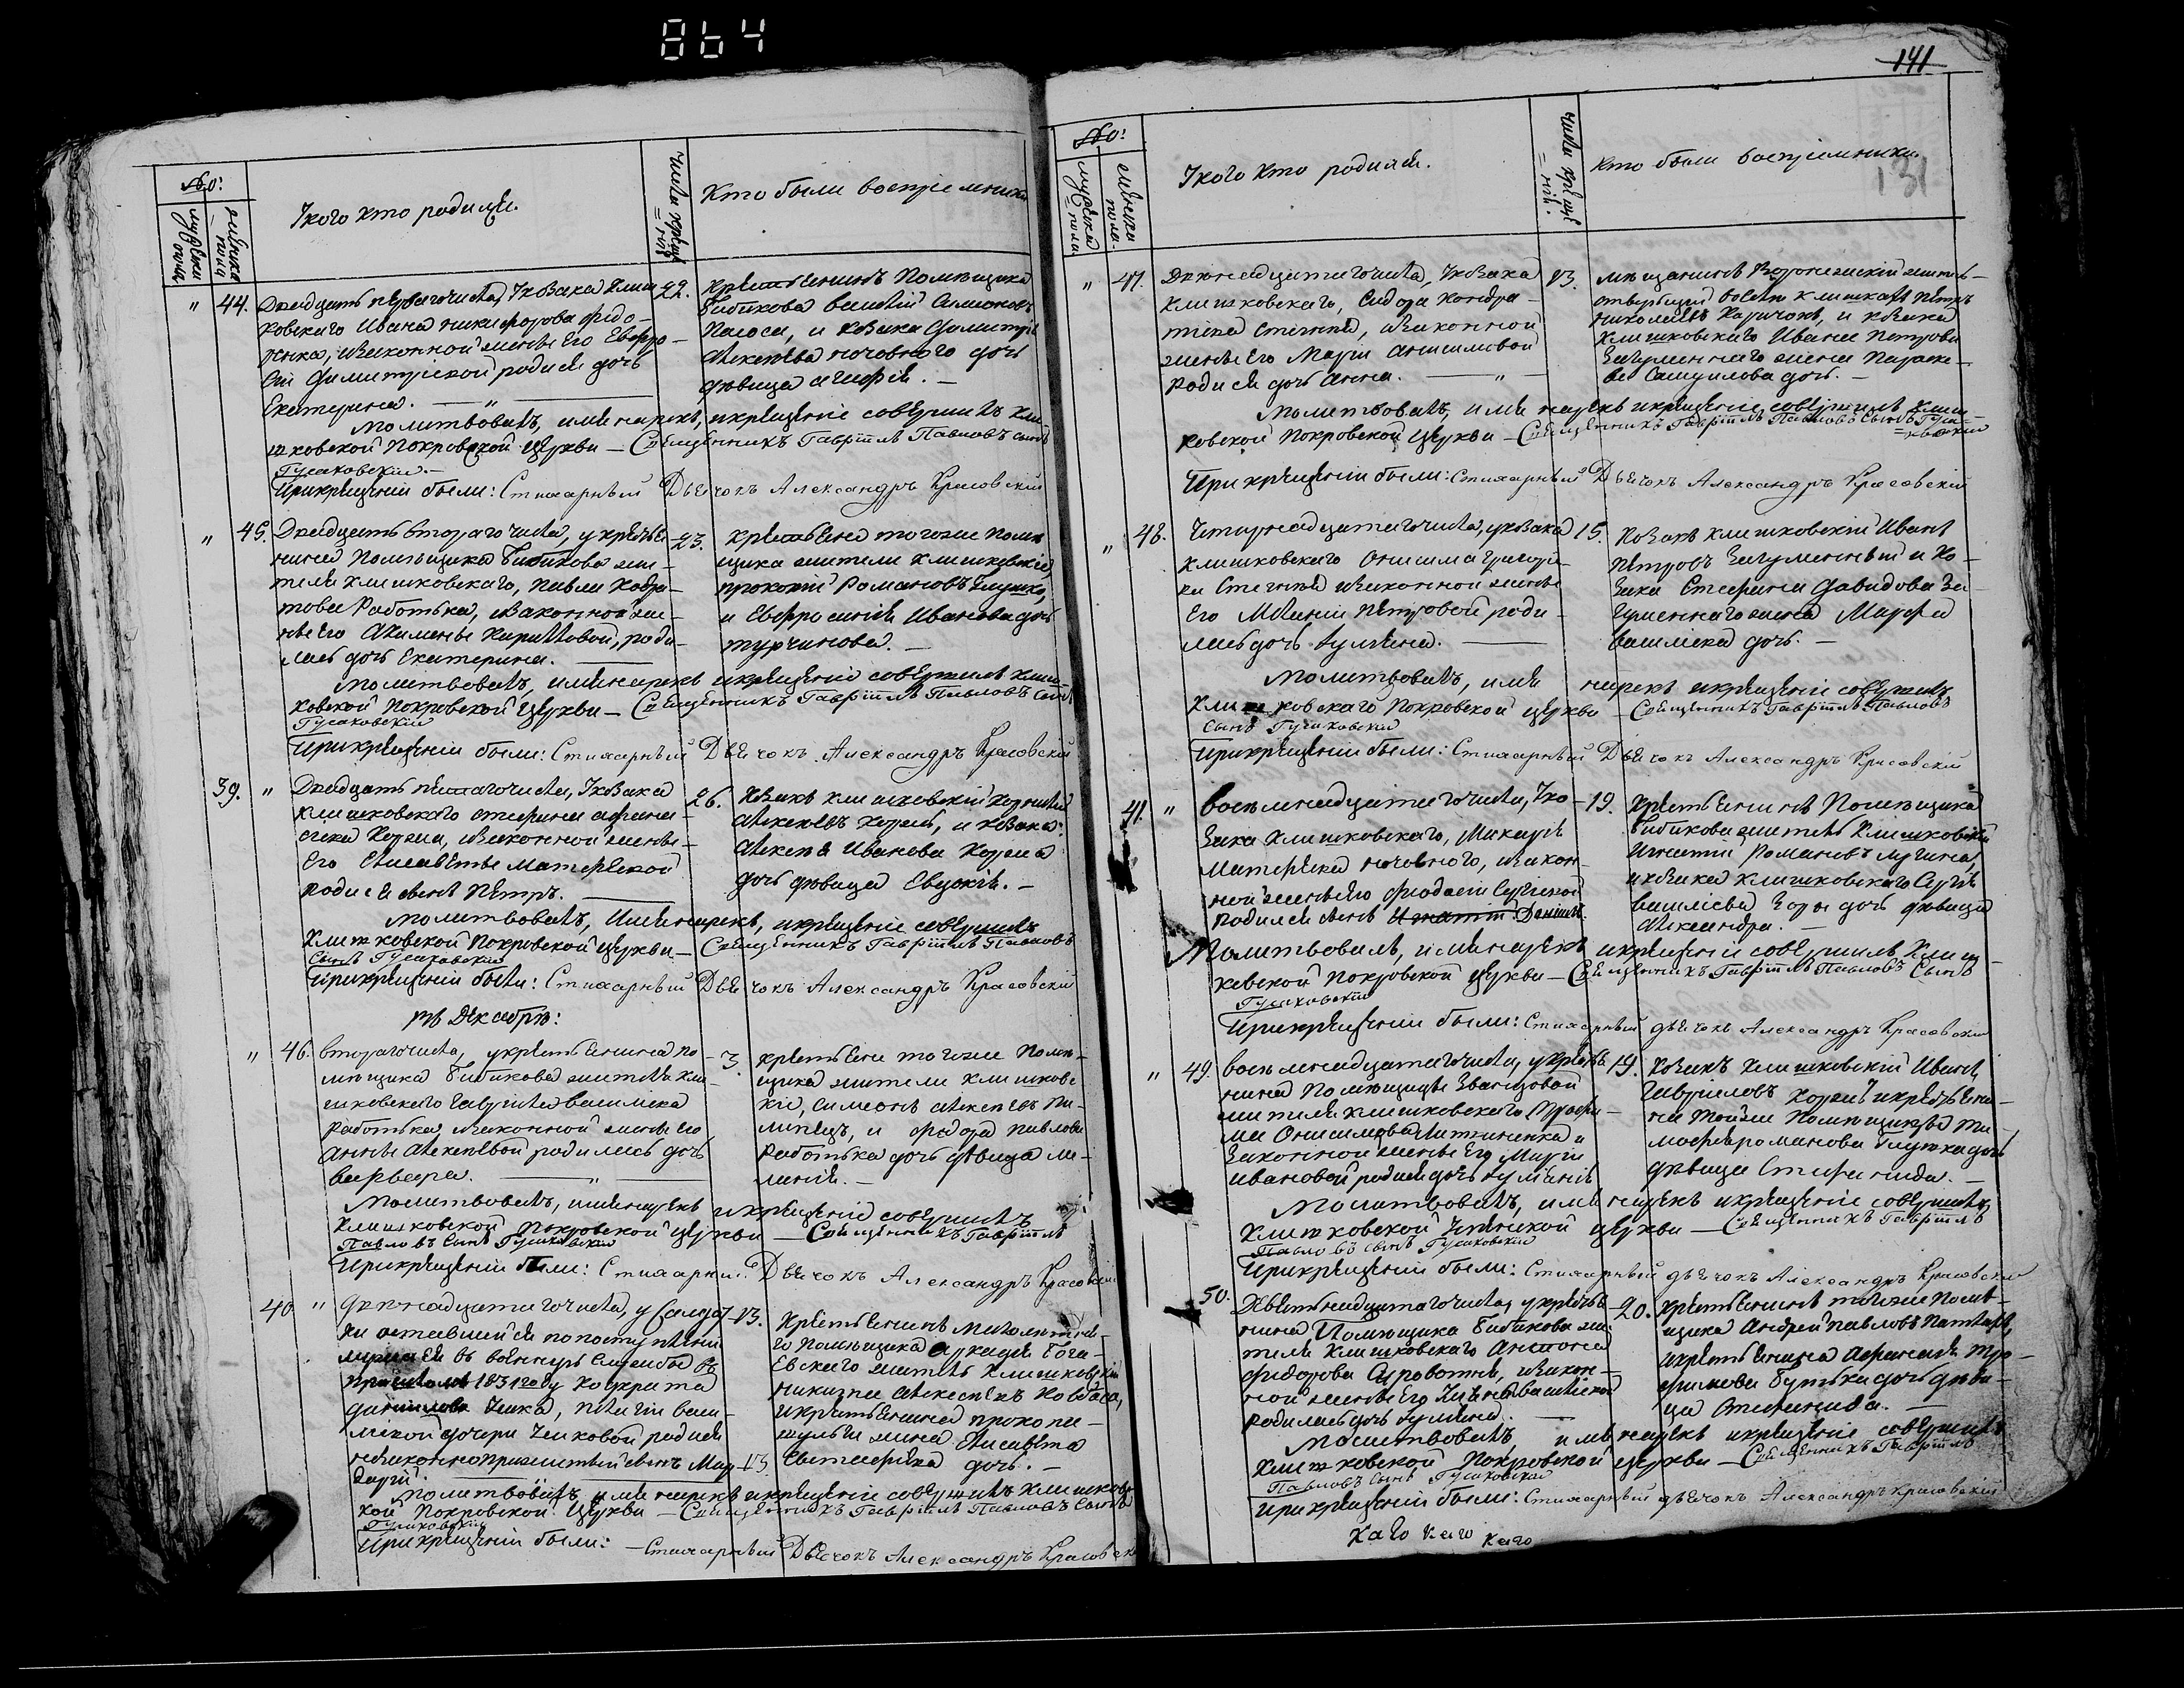 864
№:
мужеска пола
женска пола
У кого кто родился.
числа крещенія
Кто были воспріемники
" 44.
Двадцать перваго числа, У козака Клиш
ковского Ивана Никифорова Федо-
ренка, изаконной жены его Евфро-
сіи Димитріевой родися дочь
Екатерина. — " —
22.
Крестьенинъ Помѣщика
Бибикова Василій Симоновъ
и козака Димитрія
Алексѣева дочь
дѣвица Агафія. —
Молитвовалъ, имя нарекъ, икрещеніе совершилъ Кли
шковской Покровской Церкви — Священникъ Гавріилъ Павловъ сынъ
Гусаковскій. —
Прикрещеніи были: Стихарный Дьячокъ Александръ Красовскій
" 45.
Двадцать втораго числа, у крестье
нина Помѣщика Бибикова жи-
теля Клишковского, Павла Кодра-
това Работька, изаконной же-
ны его Акилины Кириловой, роди-
лась дочь Екатерина. —
23.
Крестьене тогоже Помѣ
щика жители Клишковскіе
Прокопій Романовъ
и Евфросинія Иванова дочь
Турчинова. —
Молитвовалъ, имя нарекъ икрещеніе совершилъ Клиш
ковской Покровской Церкви — Священникъ Гавріилъ Павловъ Сынъ
Гусаковскій
Прикрещеніи были: Стихарный Дьячокъ Александръ Красовскій
39. "
Двадцать пятаго числа, У козака
Клишковского Стефана Афана-
сіева Корена, изаконной жены
Его Елисаветы Матфѣевой
родися сынъ Петръ. —
26.
Козакъ Клишковскій Корнилій
Алексѣевъ Корень, и козака
Алексѣя Иванова Корена
дочь дѣвица Евдокія. —
Молитвовалъ, Имя нарекъ, икрещеніе совершилъ
Клишковской Покровской Церкви — Священникъ Гавріилъ Павловъ
Сынъ Гусаковскій
Прикрещеніи были: Стихарный Дьячокъ Александръ Красовскій
въ Декабрѣ:
" 46.
Втораго числа, у крестьенина По
мѣщика Бибикова жителя Кли-
шковского Гавріила Василіева
Работька, изаконной жены его
Анны Алексѣевой родилась дочь
Варвара. — " —
3.
Крестьене тогоже Помѣ-
щика жители Клишковс
кіе, Симеонъ Алексѣевъ Пи-
липецъ, и Федора Павлова
Работька дочь дѣвица Ме-
ланія. —
Молитвовалъ, имя нарекъ икрещеніе совершилъ
Клишковской Покровской Церкви — Священникъ Гавріилъ
Павловъ Сынъ Гусаковскій
Прикрещеніи были: Стихарный Дьячокъ Александръ Красовскій
40 "
числа, у Солдат
ки оставшейся по поступленіи
мужа ея въ военную Службу въ
прошломъ 1831 году Кондрата
Данилова Чижа, Пелагіи Васи-
ліевой дочери Чижовой, родися
незаконноприжитый сынъ Мар-
дарій.
13.
13.
Крестьенинъ
го Помѣщика Аркадія
житель Клишковскій
Никита Алексѣевъ
икрестьенина Прокопи
жена Елисавета
Евстафіева дочь. —
Молитвовалъ имя нарекъ икрещеніе совершилъ Клишковс
кой Покровской Церкви — Священникъ Гавріилъ Павловъ Сынъ
Гусаковскій
Прикрещеніи были: — Стихарный Дьячокъ Александръ Красовск
141
131
№:
мужеска пола
женска пола.
У кого кто родился.
числа крещенія.
Кто были воспріемники.
" 47.
числа, У козака
Клишковского, Сидора Кондра-
тіева изаконной
жены Его Маріи Анисимовой
родися дочь Анна. — " —
13.
Мѣщанинъ Воронежскій житель-
Клишкахъ Петръ
Николаевъ и козака
Клишковского Ивана Петрова
жена Параске-
ва Самуилова дочь. —
Молитвовалъ, имя нарекъ икрещеніе совершилъ Клиш-
ковской Покровской Церкви — Священникъ Гавріилъ Павловъ Сынъ Гуса-
ковскій
Прикрещеніи были: Стихарный Дьячокъ Александръ Красовскій
" 48.
Четырнадцатаго числа, у козака
Клишковского Онисима Григорі-
ева изаконной жены
Его Меланіи Петровой роди-
лась дочь Гуліяна. —
15.
Козакъ Клишковскій Иванъ
Петровъ и Ко-
зака Стефана Давидова
жена Марфа
Василіева дочь. —
Молитвовалъ, имя нарекъ икрещеніе совершилъ
Клишковского Покровской Церкви — Священникъ Гавріилъ Павловъ
Сынъ Гусаковскій
Прикрещеніи были: Стихарный Дьячокъ Александръ Красовскій
41. "
Восьмнадцатаго числа, У ко-
зака Клишковского, Макарія
Матфѣева изакон-
ной жены его Феодосіи Сергѣевой
родился сынъ Игнатій Даніилъ.
19.
Крестьенинъ Помѣщика
Бибикова житель Клишковскій
Игнатій Романовъ
икозака Клишковского Сергія
Василіева дочь дѣвица
Александра. —
Молитвовалъ, имя нарекъ икрещеніе совершилъ Клиш
ковской Покровской Церкви — Священникъ Гавріилъ Павловъ Сынъ
Гусаковскій
Прикрещеніи были: Стихарный дьячокъ Александръ Красовскій
" 49.
Восьмнадцатаго числа, у крестье
нина Помѣщицы
жителя Клишковского
Онисимова Литвиненка и
Законной жены Его Маріи
Ивановой родися дочь Гуліянія
19.
Козакъ Клишковскій Иванъ
Гавріиловъ Корень икрестьени-
на тойже Помѣщицы Ти-
мофея Романова дочь
дѣвица Стефанида. —
Молитвовалъ, имя нарекъ икрещеніе совершилъ
Клишковской Церкви — Священникъ Гавріилъ
Павловъ Сынъ Гусаковскій
Прикрещеніи были: Стихарный дьячокъ Александръ Красовскій
50.
Девятнадцатаго числа, у крестье
нина Помѣщика Бибикова жи-
теля Клишковского Антона
Федорова изакон-
ной жены Его Василіевой
родилась дочь Гуліяна. —
20.
Крестьенинъ тогоже Помѣ-
щика Андрей Павловъ
икрестьенина Афанасія Тро-
фимова дочь дѣви-
ца Стефанида. —
Молитвовалъ имя нарекъ икрещеніе совершилъ
Клишковской Покровской Церкви — Священникъ Гавріилъ
Павловъ Сынъ Гусаковскій
Прикрещеніи были: Стихарный дьячокъ Александръ Красовскій
Каго Каго Каго